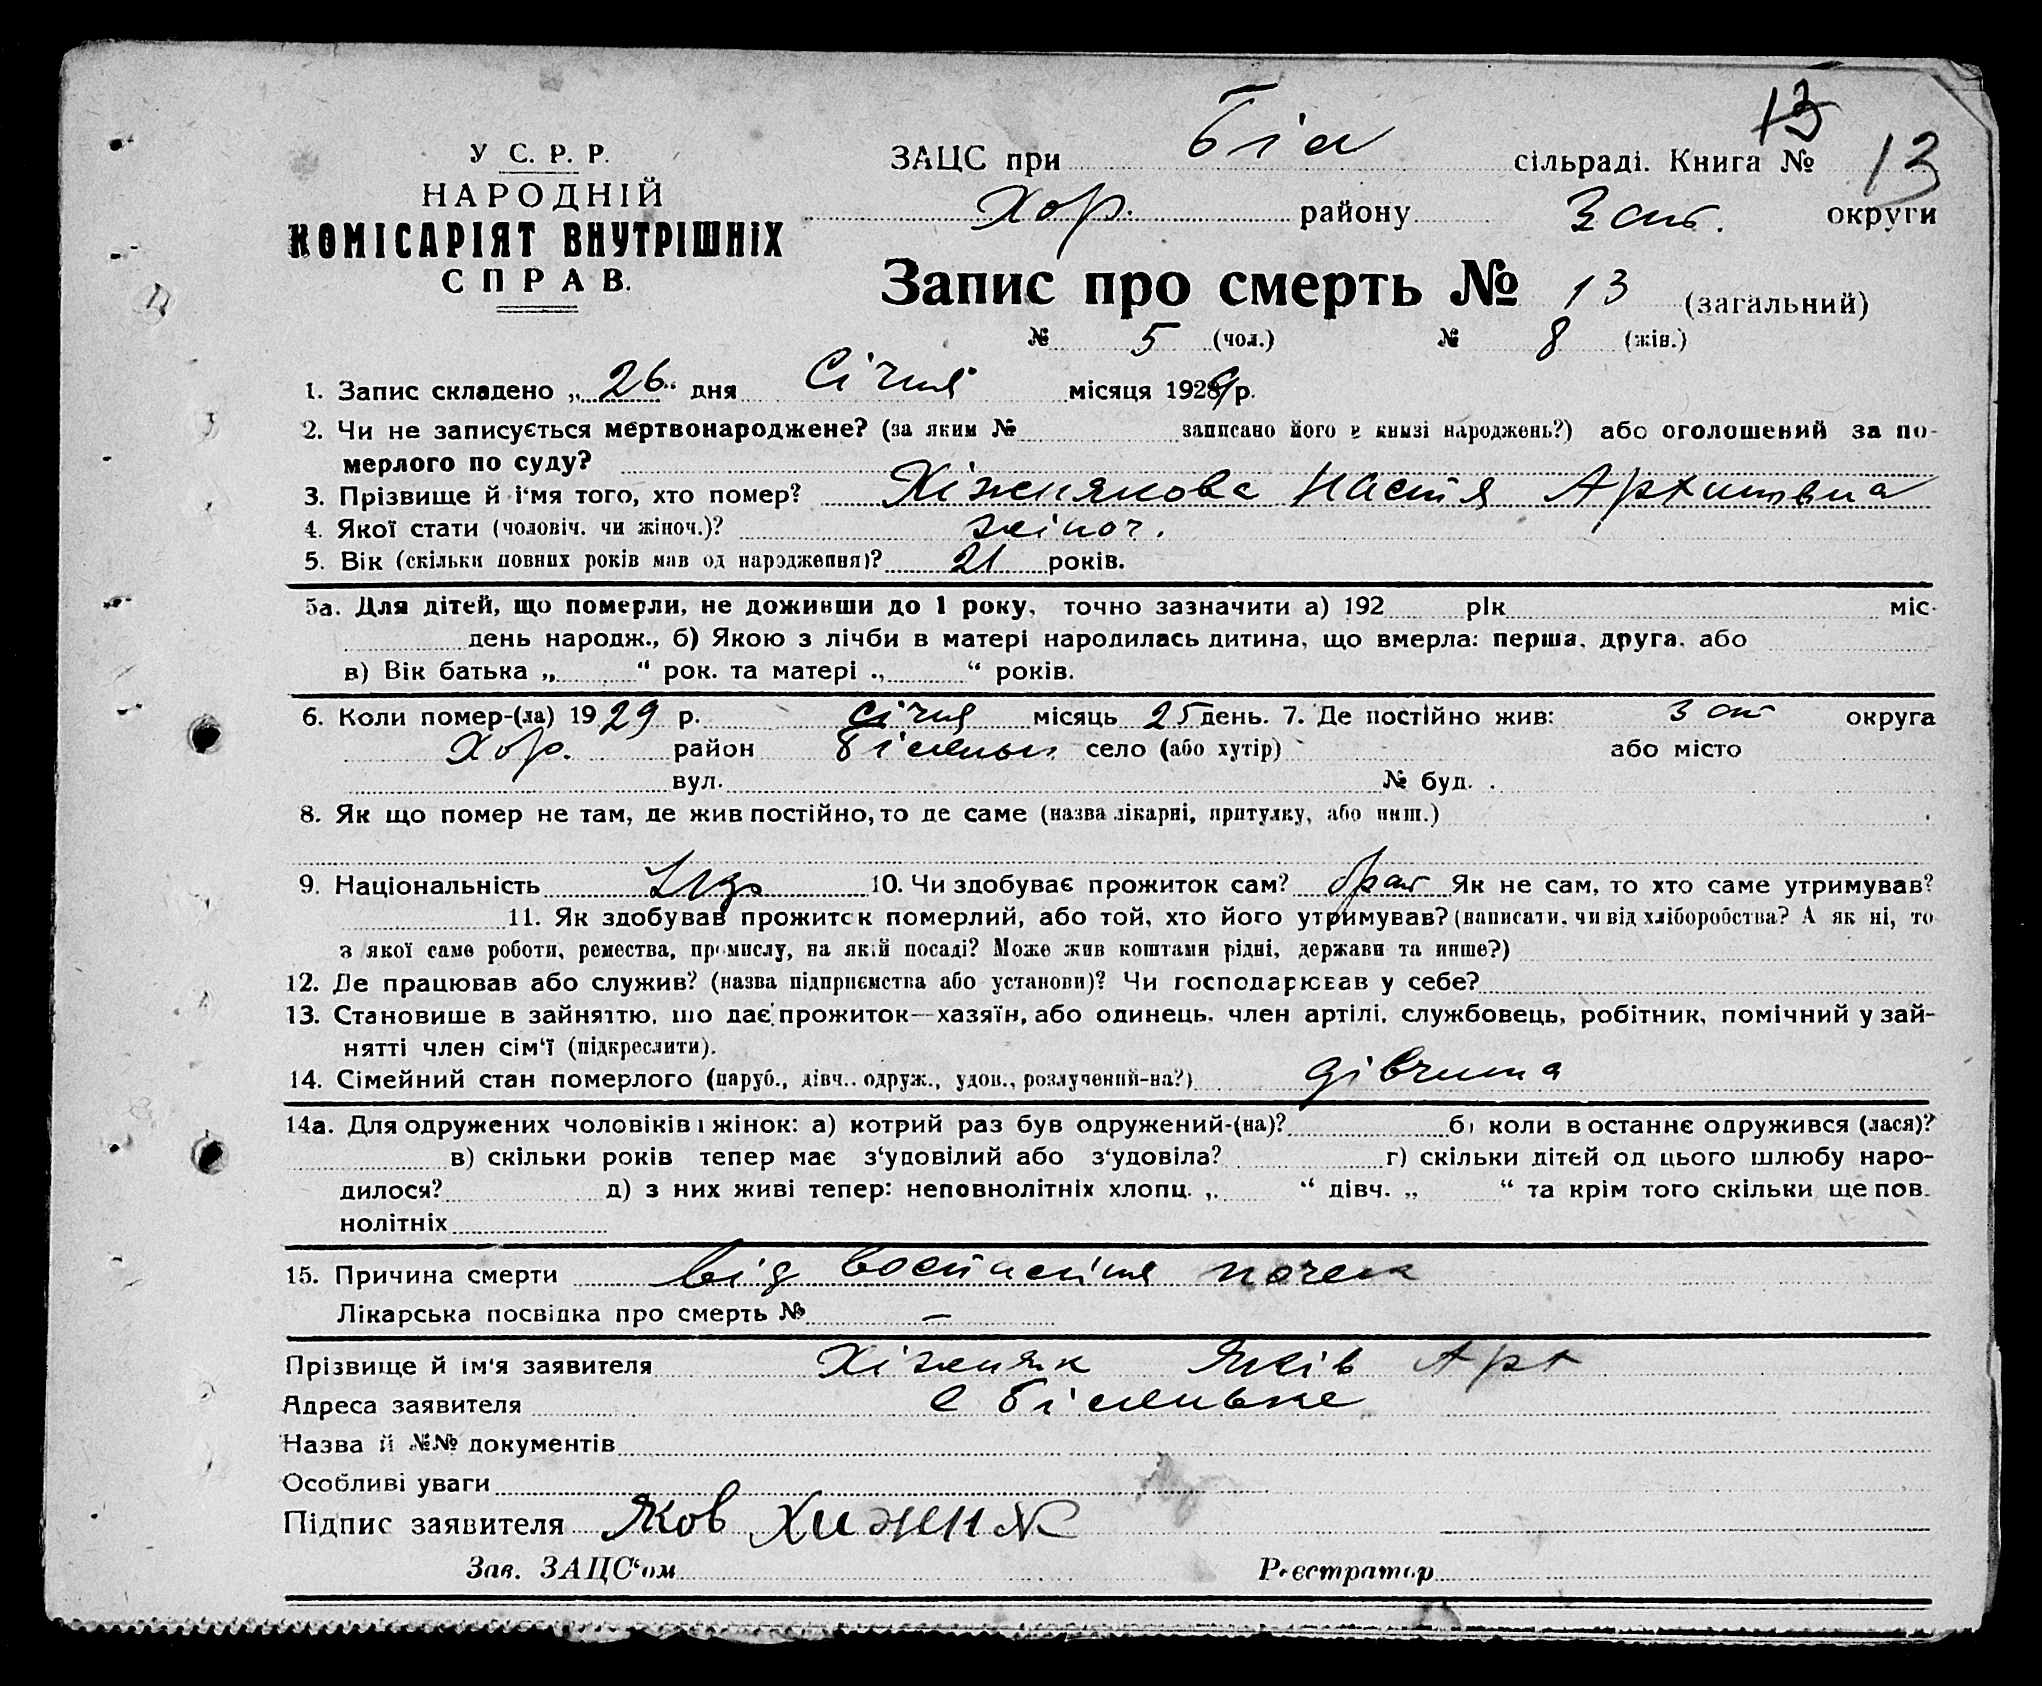 У С. Р. Р.
НАРОДНІЙ
КОМІСАРІЯТ ВНУТРІШНІХ
СПРАВ.
15
ЗАЦС при Біл сільраді. Книга № 13
Хор. району Зап. округи
Запис про смерть № 13 (загальний)
№ 5 (чол.) № 8 (жін.)
1. Запис складено „ 26 “ дня Січня місяця 1929 р.
2. Чи не записується мертвонароджене? (за яким № записано його в книзі народжень?) або оголошений за по-
мерлого по суду?
3. Прізвище й і‘мя того, хто помер? Хіжнякова Настя Архипівна
4. Якої стати (чоловіч. чи жіноч.)? жіноч.
5. Вік (скільки повних років мав од народження)? 21 років.
5а. Для дітей, що померли, не доживши до 1 року, точно зазначити а) 192 рік міс.
день народж., б) Якою з лічби в матері народилась дитина, що вмерла: перша, друга, або
в) Вік батька „ “ рок. та матері „ “ років.
6. Коли помер-(ла) 1929 р. січня місяць 25 день. 7. Де постійно жив: Зап округа
Хор. район Біленьк. село (або хутір) або місто
вул. № буд.
8. Як що помер не там, де жив постійно, то де саме (назва лікарні, притулку, або инш.)
9. Національність Укр 10. Чи здобуває прожиток сам? брат Як не сам, то хто саме утримував?
11. Як здобував прожиток померлий, або той, хто його утримував? (написати, чи від хліборобства? А як ні, то
з якої саме роботи, ремества, промислу, на якій посаді? Може жив коштами рідні, держави та инше?)
12. Де працював або служив? (назва підприємства або установи)? Чи господарював у себе?
13. Становище в зайняттю, що дає прожиток—хазяїн, або одинець, член артілі, службовець, робітник, помічний у зай-
нятті член сім‘ї (підкреслити).
14. Сімейний стан померлого (паруб., дівч., одруж., удов., розлучений-на?) дівчина
14а. Для одружених чоловіків і жінок: а) котрий раз був одружений-(на)? б) коли в останнє одружився (лася)?
в) скільки років тепер має з‘удовілий або з‘удовіла? г) скільки дітей од цього шлюбу наро-
дилося? д) з них живі тепер: неповнолітніх хлопц. „ “ дівч. „ “ та крім того скільки ще пов.
нолітніх
15. Причина смерти від воспаління почек
Лікарська посвідка про смерть № –
Прізвище й ім‘я заявителя Хіжняк Яків Арх
Адреса заявителя с Біленьке
Назва й №№ документів
Особливі уваги
Підпис заявителя Яков Хижняк
Зав. ЗАЦС‘ом Реєстратор